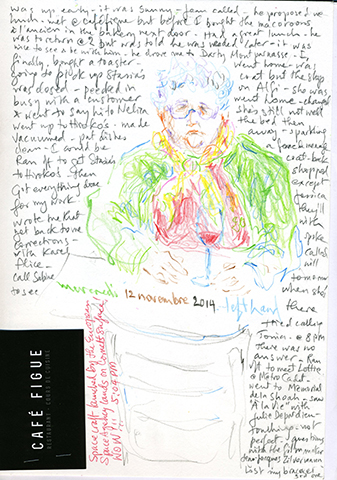 was up early - it was sunny - Jean called - he proposed we
lunch - met @ Café Figue but before I bought the macaroons
à l'ancien in the bakery next door - Had a great lunch - he
was to return @ 2 but was told he was needed later - it was
nice to see & be with him - he drove me to Darty Montparnasse - I
finally bought a toaster -
going to pick up Stasia's
was closed - peeked in
busy with a customer
x went to say hi to Nelia
went up to Hiroko's - made
vacuumed - put dishes
down - I could be
Ran off to get Stasia's
to Hiroko's - then
Got everything done
for my work
wrote me that
get back to me
corrections -
with Karen
Alice -
call Sabine
to see
went home - was
coat but the shop
on Alfi - she was
went home - changed
she's still not well
the bed then
away - sparking
a face message
coat - back
shopped
except
Jessica
they'll
with
spoke
called
will
tomorrow
when she'd
there
tried calling
Tonia - @ 8pm
There was no
answer - Ran
off to meet Lottie
@ Metro Cadet -
went to Memorial
de la Shoah - saw
"A la vie" with
Julie Depardieu -
touching - not
perfect - questions
with the film maker
Jean-Jacques Zilbermann
Lost my bracelet -
3rd one,
mercredi 12 novembre 2014 - left hand
Spacecraft launched by the European
Space agency lands on Comet's surface
WOW!!! 5:04 PM
CAFÉ FIGUE
RESTAURANT . COURS DE CUISINE